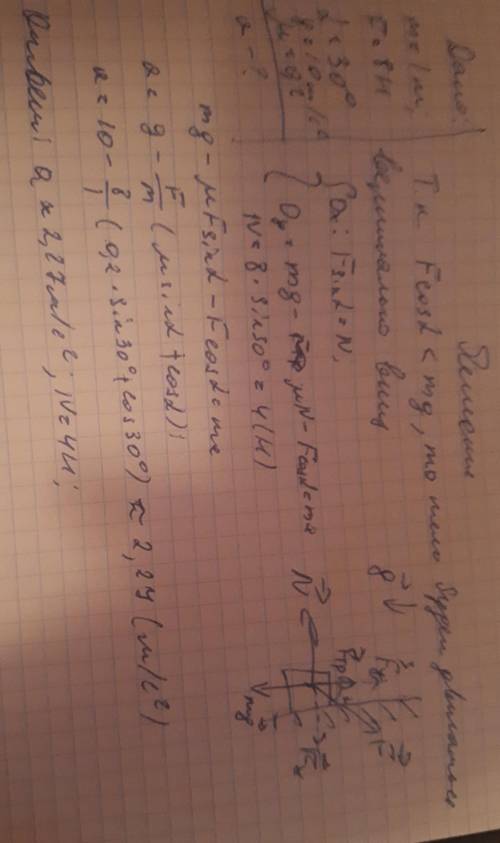 Дано:
m = 1 кг;
F = 8 Н
α = 30°
g = 10 м/с²
μ = 0,2
a - ?
Решение
Т.к Fcosα < mg, то тело будет двигаться
вертикально вниз
Ox: Fsinα = N,
Oy = mg - μN - Fcosα = ma
N = 8 · sin30° = 4 (Н)
mg - μFsinα - Fcosα = ma
a = g - F/m (μsinα + cosα);
a = 10 - 8/1 (0,2 · sin30° + cos30°) ≈ 2,27 (м/с²)
Ответ: a ≈ 2,27 м/с²; N = 4Н;
g
F
N
Fтр
mg
Fx